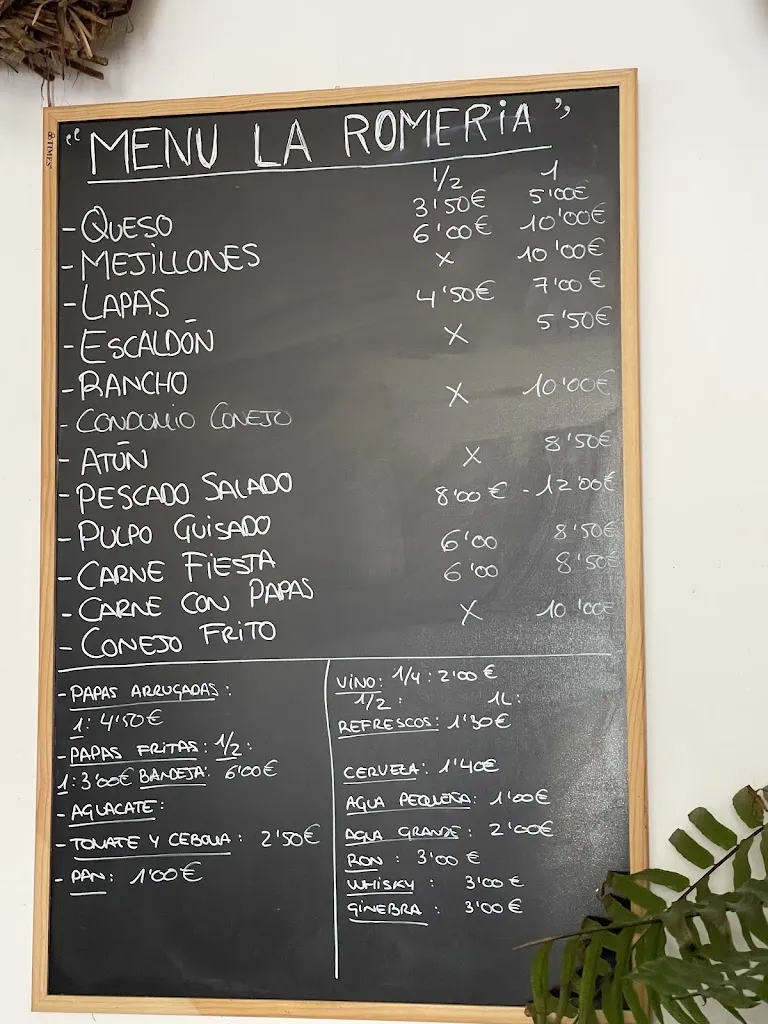 "MENU LA ROMERIA"
1/2 1
- QUESO 3'50€ 5'00€
- MEJILLONES 6'00€ 10'00€
- LAPAS X 10'00€
- ESCALDÓN 4'50€ 7'00€
- RANCHO X 5'50€
- CONDUMIO CONEJO X 10'00€
- ATÚN
- PESCADO SALADO X 8'50€
- PULPO GUISADO 8'00€ - 12'00€
- CARNE FIESTA 6'00 8'50€
- CARNE CON PAPAS 6'00 8'50€
- CONEJO FRITO X 10'00€
- PAPAS ARRUGADAS:
1: 4'50€
- PAPAS FRITAS: 1/2:
1: 3'00€ BANDEJA: 6'00€
- AGUACATE:
- TOMATE Y CEBOLLA: 2'50€
- PAN: 1'00€
VINO: 1/4: 2'00€
1/2: 1L:
REFRESCOS: 1'30€
CERVEZA: 1'40€
AGUA PEQUEÑA: 1'00€
AGUA GRANDE: 2'00€
RON: 3'00€
WHISKY: 3'00€
GINEBRA: 3'00€
TIMES